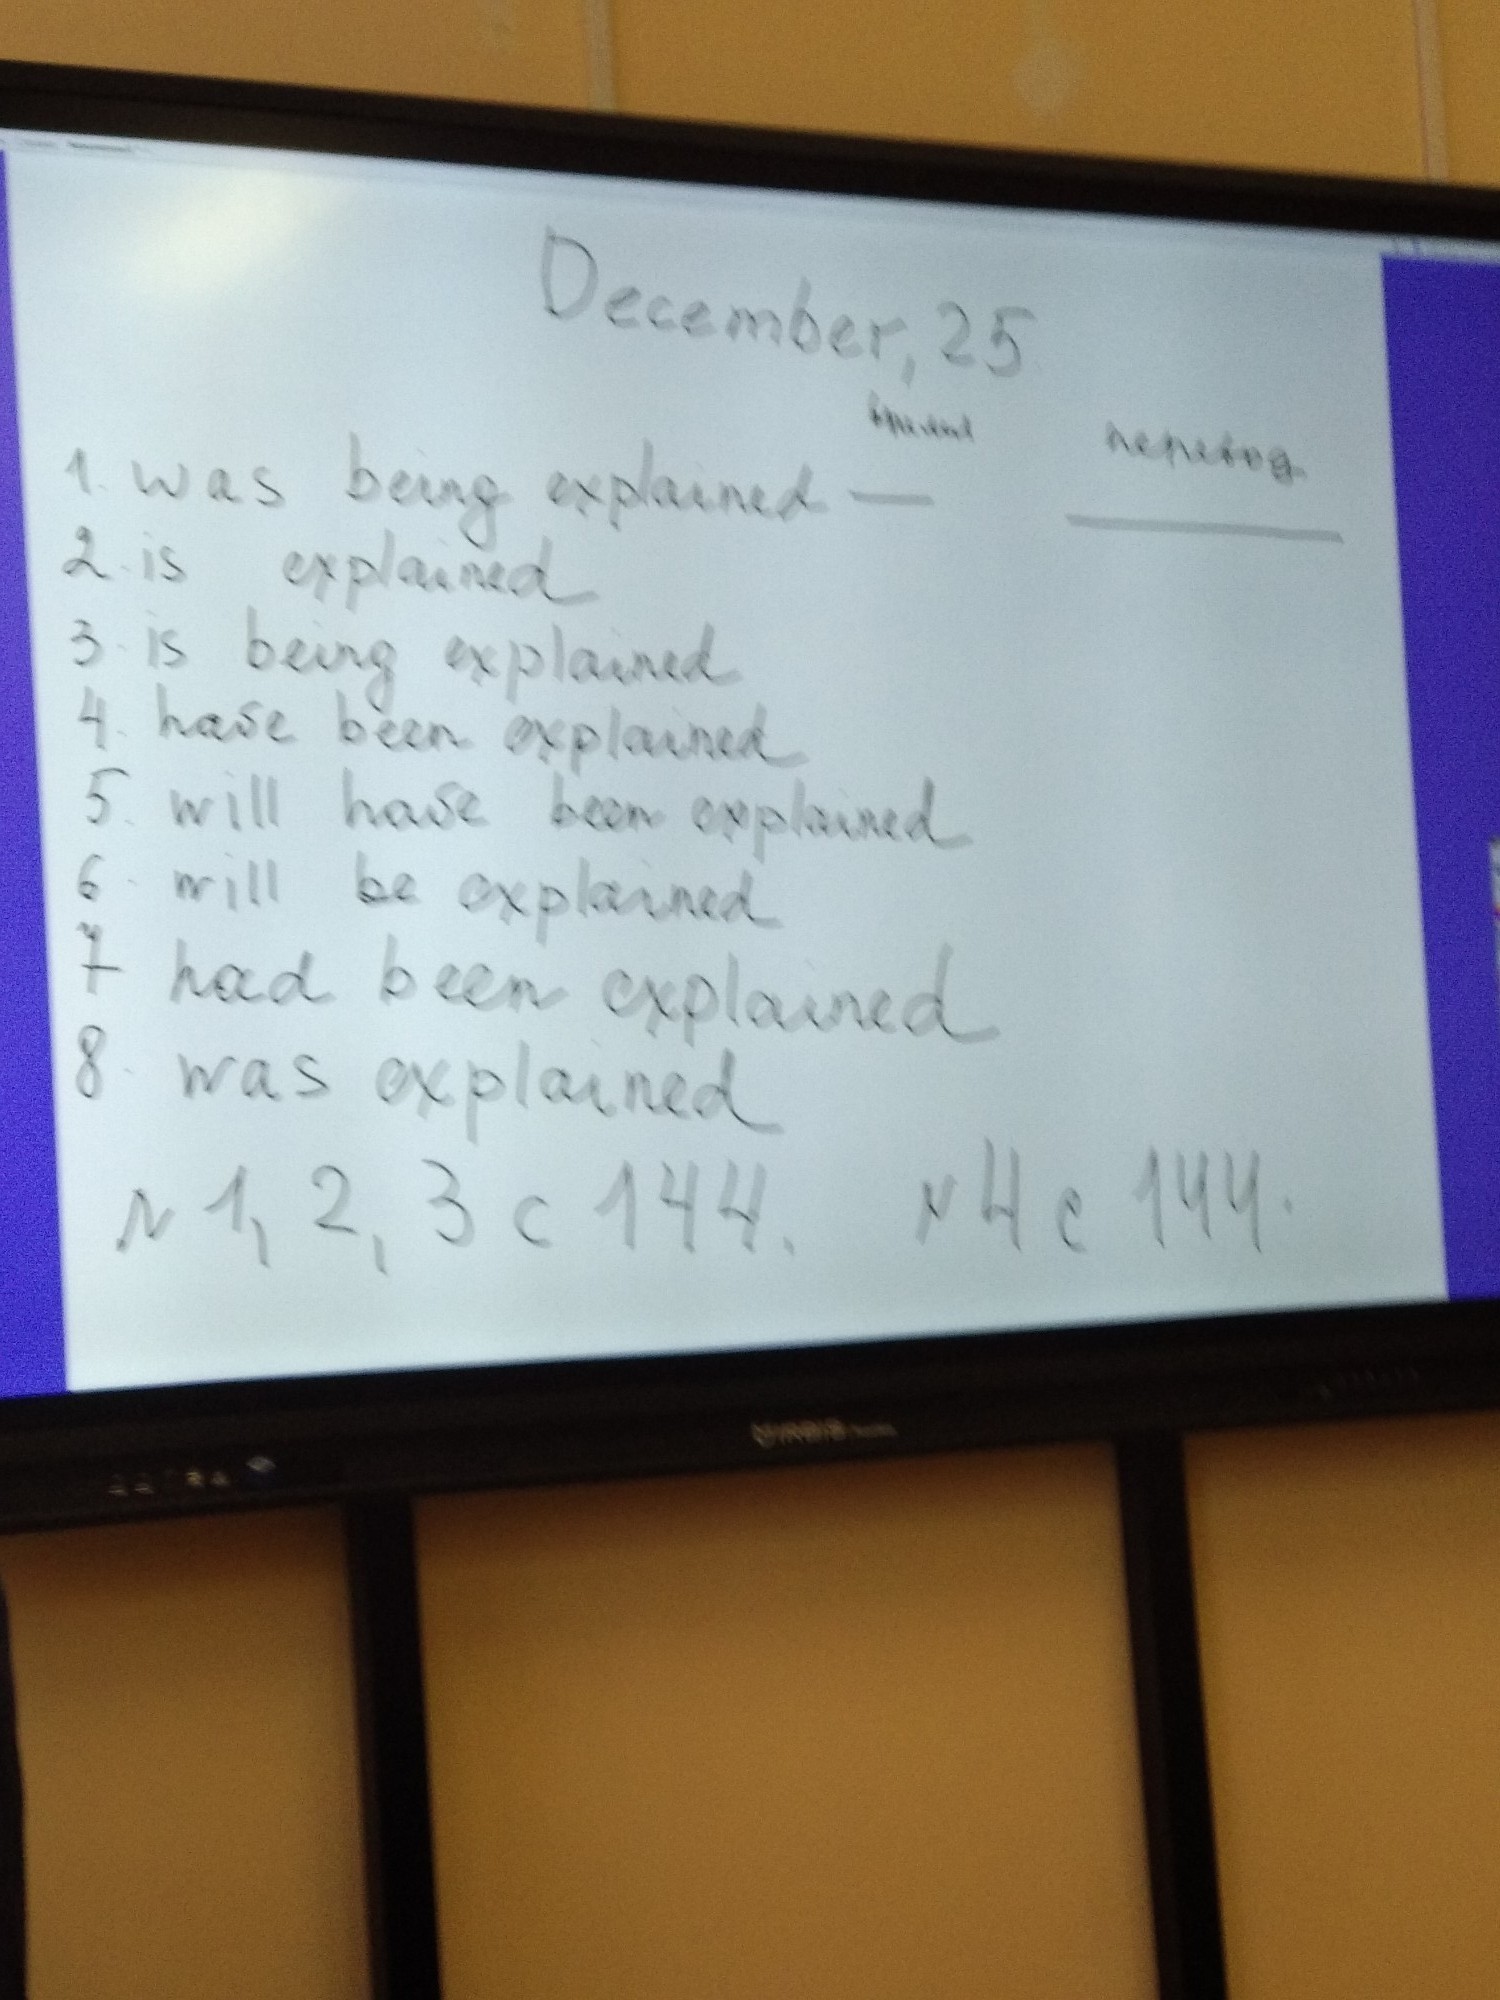 December, 25
время перевод
1. was being explained —
2. is explained
3. is being explained
4. have been explained
5. will have been explained
6. will be explained
7 had been explained
8. was explained
N 1, 2, 3 с 144. N 4 с 144.